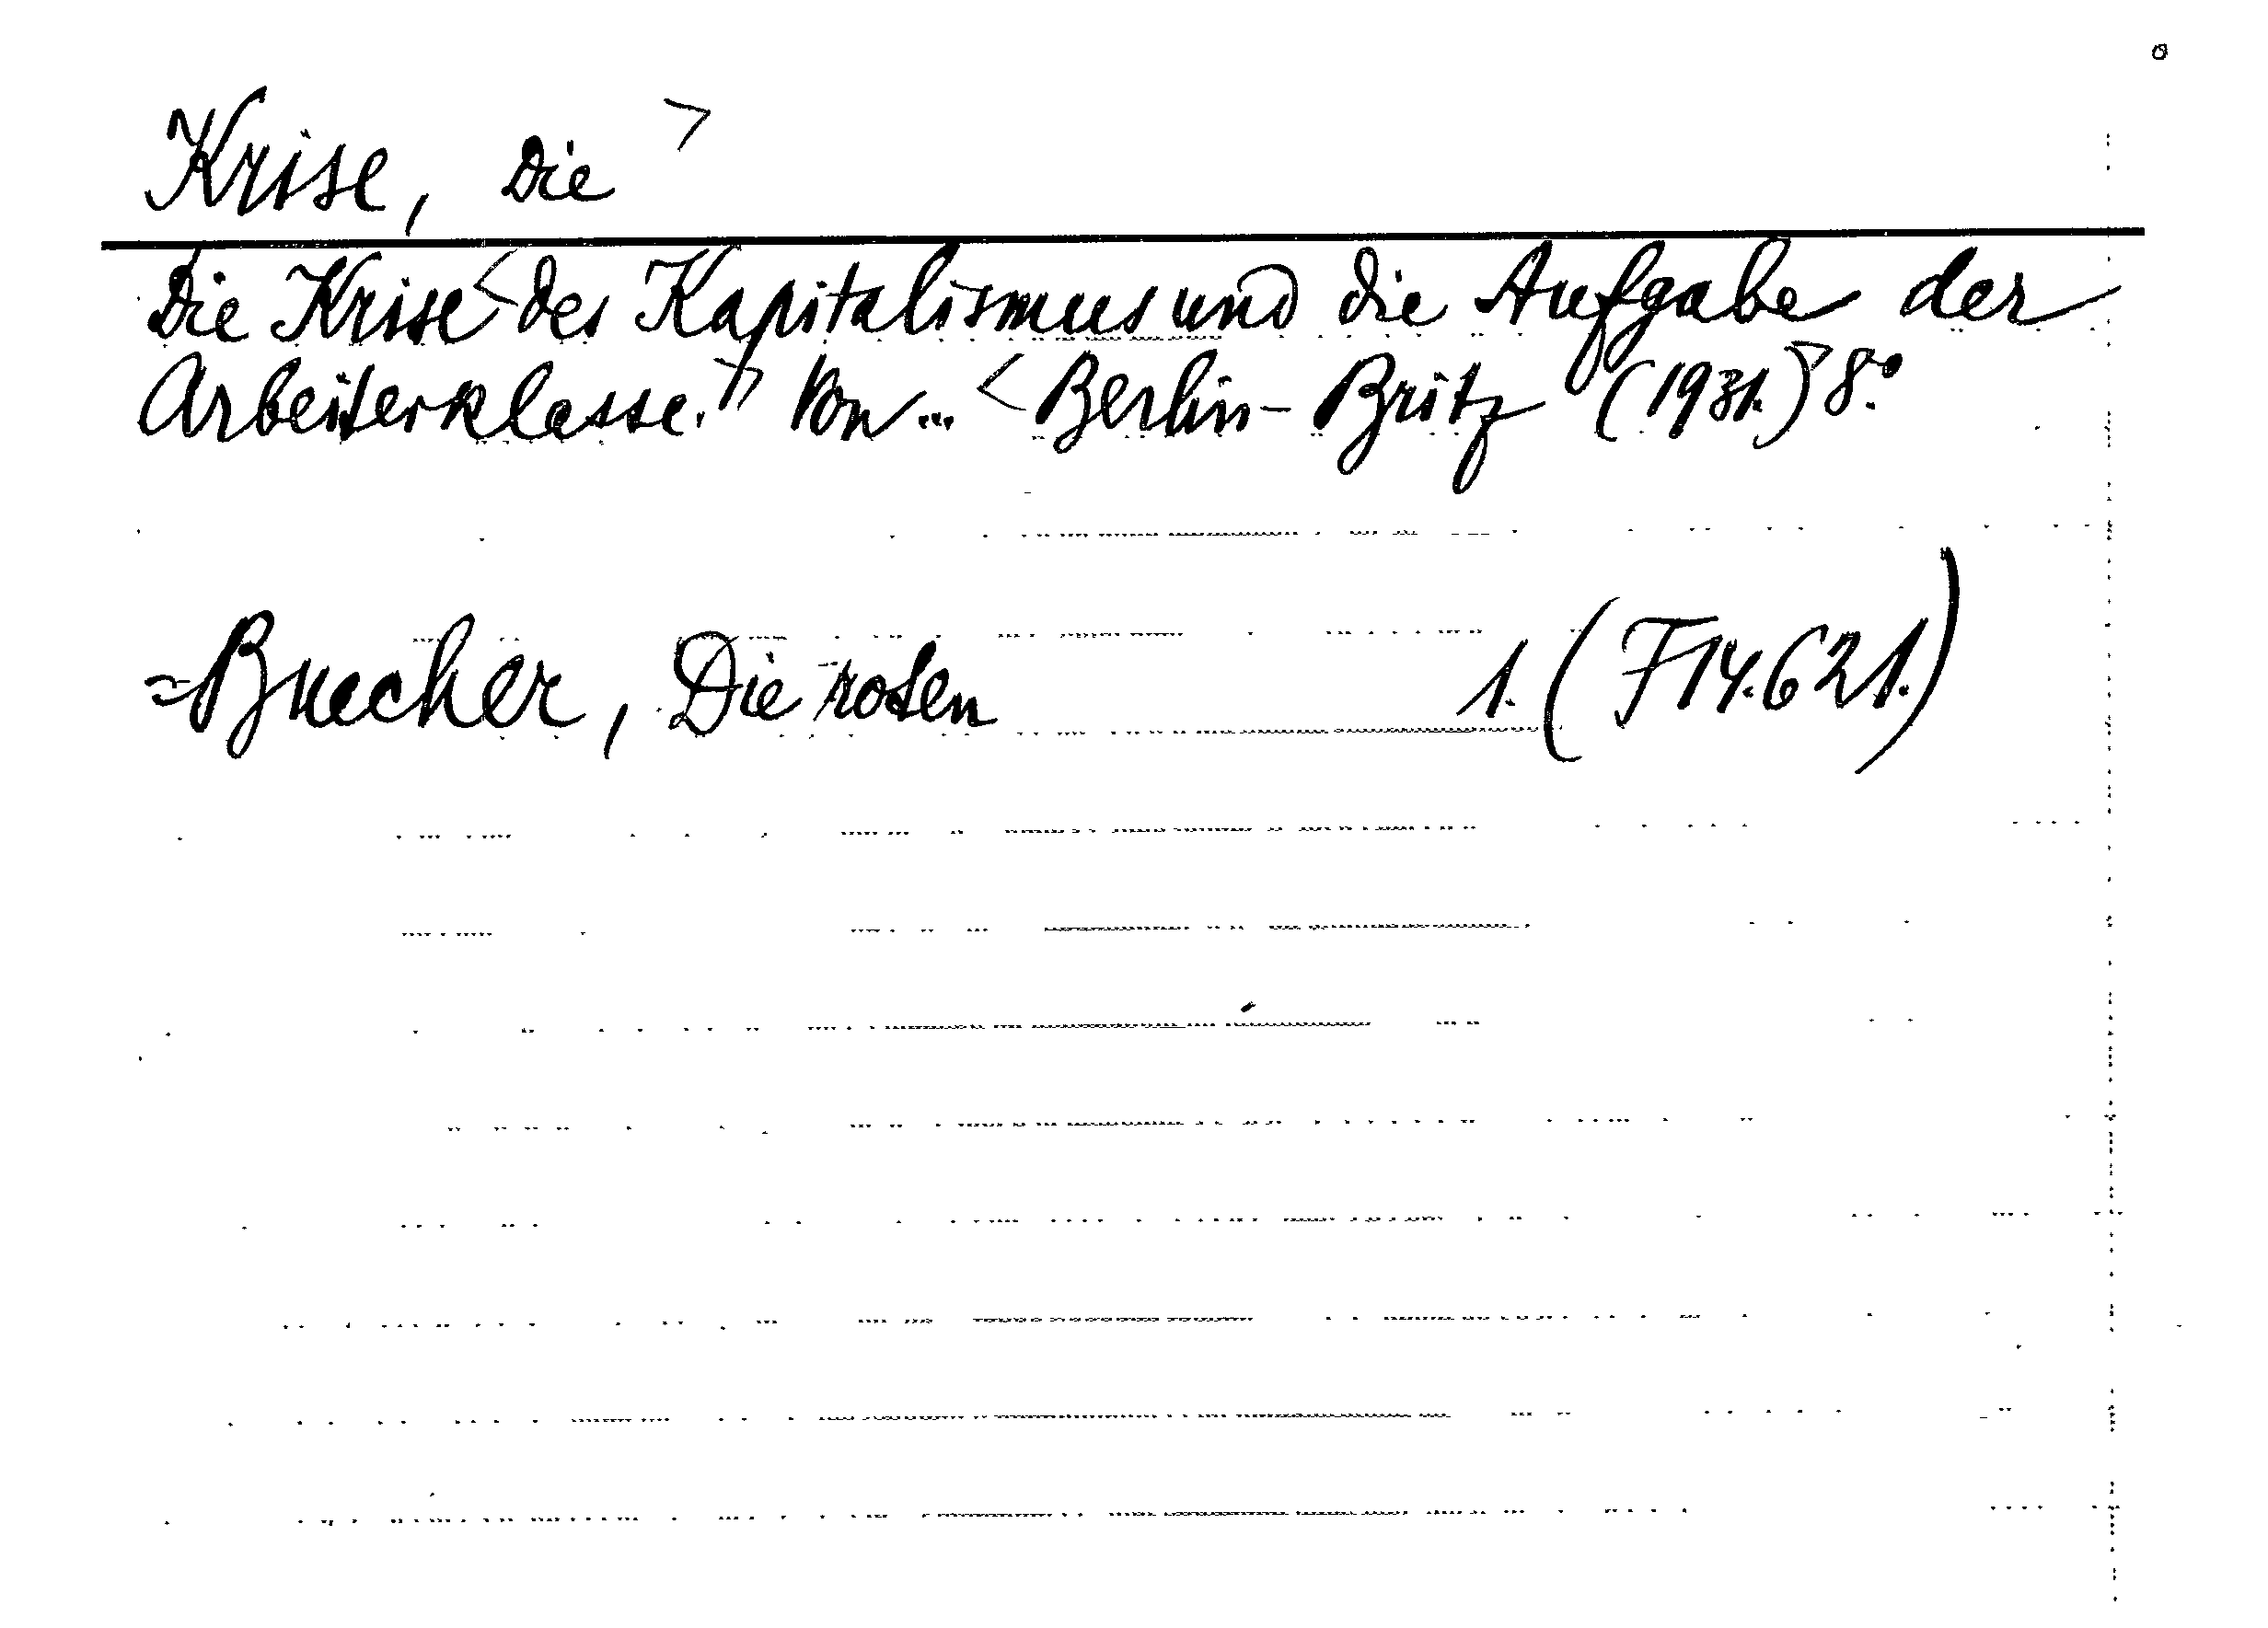 Krise, Die >
Die Krise < des Kapitalismus und die Aufgabe der
Arbeiterklasse. > Von... < Berlin-Britz (1931.) > 8.°
= Buecher, Die roten 1. (F14.621.)